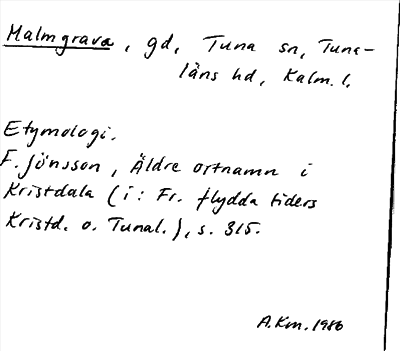 Malmgrava, gd, Tuna sn, Tuna-
läns hd, Kalm. l.
Etymologi.
F. Jönsson, Äldre ortnamn i
Kristdala (i: Fr. flydda tiders
Kristd. o. Tunal.), s. 315.
A.Km. 1986